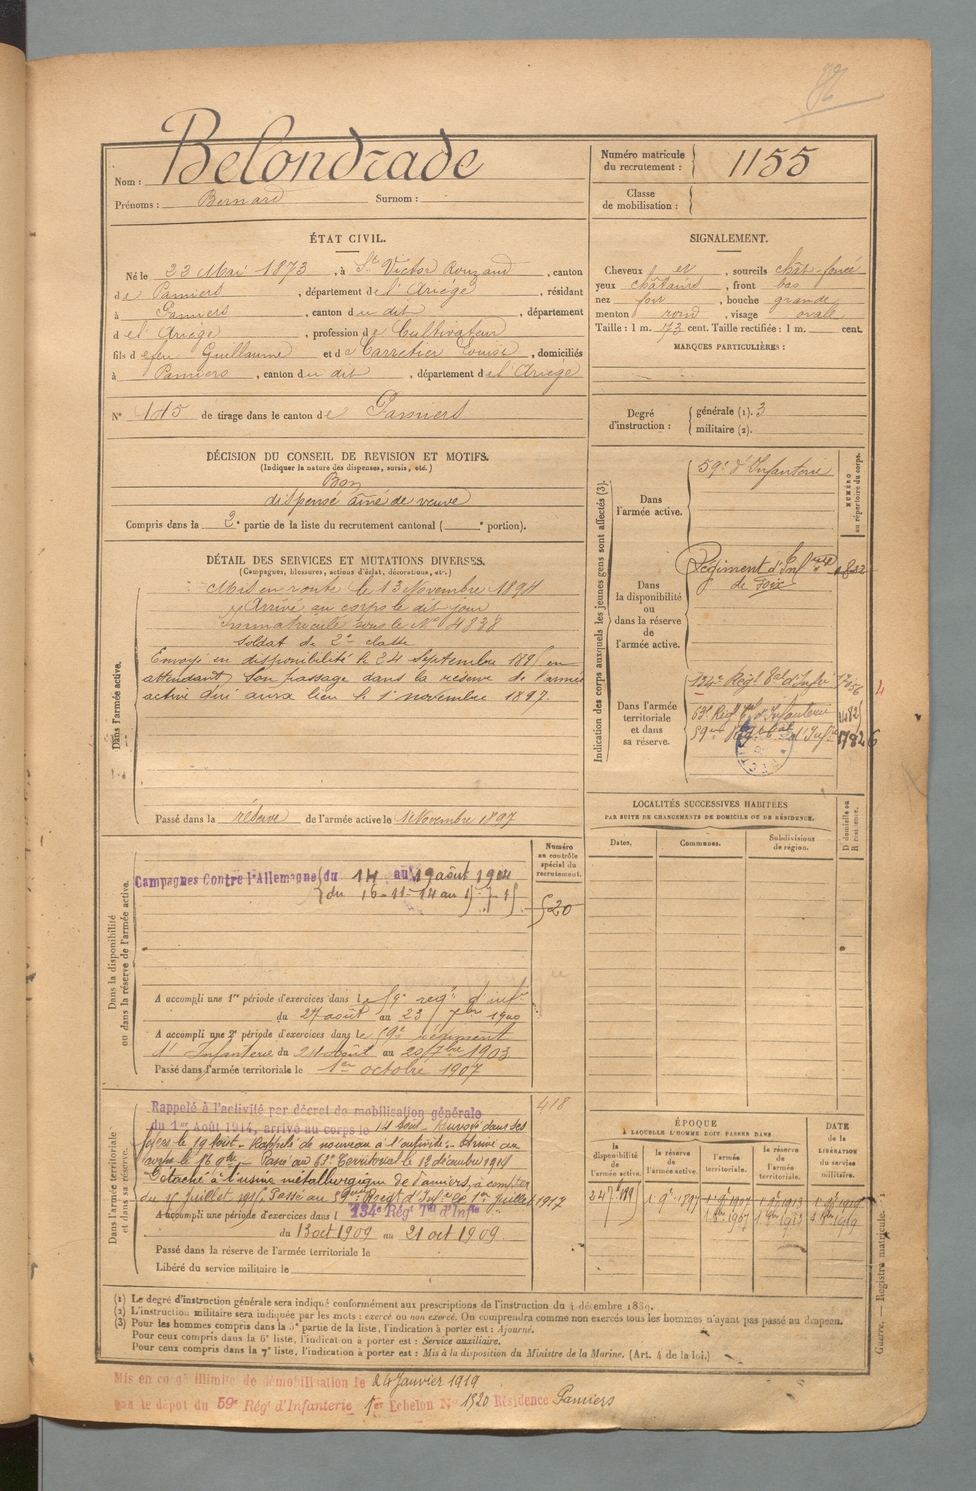 Nom : Belondrade
Prénoms : Bernard Surnom :
Numéro matricule
du recrutement : 1155
Classe
de mobilisation :
ÉTAT CIVIL.
Né le 23 Mai 1873, à St Victor Rouzaud, canton
de Pamiers, département de l'Ariège, résidant
à Pamiers, canton du dit, département
de l'Ariège, profession de Cultivateur
fils de feu Guillaume et de Carretier Louise, domiciliés
à Pamiers, canton du dit, département de l'Ariège
N° 145 de tirage dans le canton de Pamiers
SIGNALEMENT.
Cheveux et, sourcils chât-foncé
yeux châtains, front bas
nez fort, bouche grande
menton rond, visage ovale
Taille : 1 m. 73 cent. Taille rectifiée : 1 m. cent.
MARQUES PARTICULIÈRES :
Degré
d'instruction :
générale (1). 3
militaire (2).
DÉCISION DU CONSEIL DE REVISION ET MOTIFS.
(Indiquer la nature des dispenses, sursis, etc.)
Bon
dispensé aîné de veuve
Compris dans la 2e partie de la liste du recrutement cantonal ( e portion).
DÉTAIL DES SERVICES ET MUTATIONS DIVERSES.
(Campagnes, blessures, actions d'éclat, décorations, etc.)
Dans l'armée active.
Mis en route le 13 Novembre 1894
Arrivé au corps le dit jour
Immatriculé sous le N° 4838
Soldat de 2e classe
Envoyé en disponibilité le 24 Septembre 1895 en
attendant son passage dans la réserve de l'armée
active qui aura lieu le 1er novembre 1897.
Passé dans la réserve de l'armée active le 1 Novembre 1897
Indication des corps auxquels les jeunes gens sont affectés (3).
NUMÉRO
au répertoire du corps.
Dans
l'armée active.
59e d'Infanterie
Dans
la disponibilité
ou
dans la réserve
de
l'armée active.
Régiment d'Infrie
de Foix
Dans l'armée
territoriale
et dans
sa réserve.
134e Régt Tal d'Infie
63e Régt Tal d'Infanterie
59eme Régt Tal d'Infie 17826
LOCALITÉS SUCCESSIVES HABITÉES
PAR SUITE DE CHANGEMENTS DE DOMICILE OU DE RÉSIDENCE.
Dates.
Communes.
Subdivisions
de région.
D domicile ou
R résidence.
Dans la disponibilité
ou dans la réserve de l'armée active.
Numéro
au contrôle
spécial du
recrutement.
Campagnes Contre l'Allemagne du 14 au 19 août 1914
du 16-11-14 au
520
A accompli une 1re période d'exercices dans le 59e régt d'infie
du 27 août au 23 7bre 1900
A accompli une 2e période d'exercices dans le 59e régiment
d'Infanterie du 24 Août au 20 7bre 1903
Passé dans l'armée territoriale le 1er octobre 1907
Dans l'armée territoriale
et dans sa réserve.
418
Rappelé à l'activité par décret de mobilisation générale
du 1er Août 1914, arrivé au corps le 14 Août - Renvoyé dans ses
foyers le 19 Août - Rappelé de nouveau à l'activité - Arrivé au
corps le 16 9bre - Passé au 63e Territorial le 12 décembre 1914
Détaché à l'usine métallurgique de Pamiers, à compter
du 15 juillet 1915. Passé au 59eme Régt d'Infie le 1er juillet 1917
134e Régt Tal d'Infie
A accompli une période d'exercices dans l
du 13 oct 1909 au 21 oct 1909
Passé dans la réserve de l'armée territoriale le
Libéré du service militaire le
ÉPOQUE
A LAQUELLE L'HOMME DOIT PASSER DANS
la
disponibilité
de
l'armée active.
la réserve
de
l'armée active.
l'armée
territoriale.
la réserve
de
l'armée
territoriale.
DATE
de la
LIBÉRATION
du service
militaire.
24 7bre 1895
1er 9bre 1897
(1) Le degré d'instruction générale sera indiqué conformément aux prescriptions de l'instruction du 4 décembre 1889.
(2) L'instruction militaire sera indiquée par les mots : exercé ou non exercé. On comprendra comme non exercés tous les hommes n'ayant pas passé au drapeau.
(3) Pour les hommes compris dans la 5e partie de la liste, l'indication à porter est : Ajourné.
Pour ceux compris dans la 6e liste, l'indication à porter est : Service auxiliaire.
Pour ceux compris dans la 7e liste, l'indication à porter est : Mis à la disposition du Ministre de la Marine. (Art. 4 de la loi.)
Guerre. — Registre matricule. 1
Mis en congé illimité de démobilisation le 24 Janvier 1919
par le dépôt du 59e Régt d'Infanterie 1er Echelon N° 1520 Résidence Pamiers